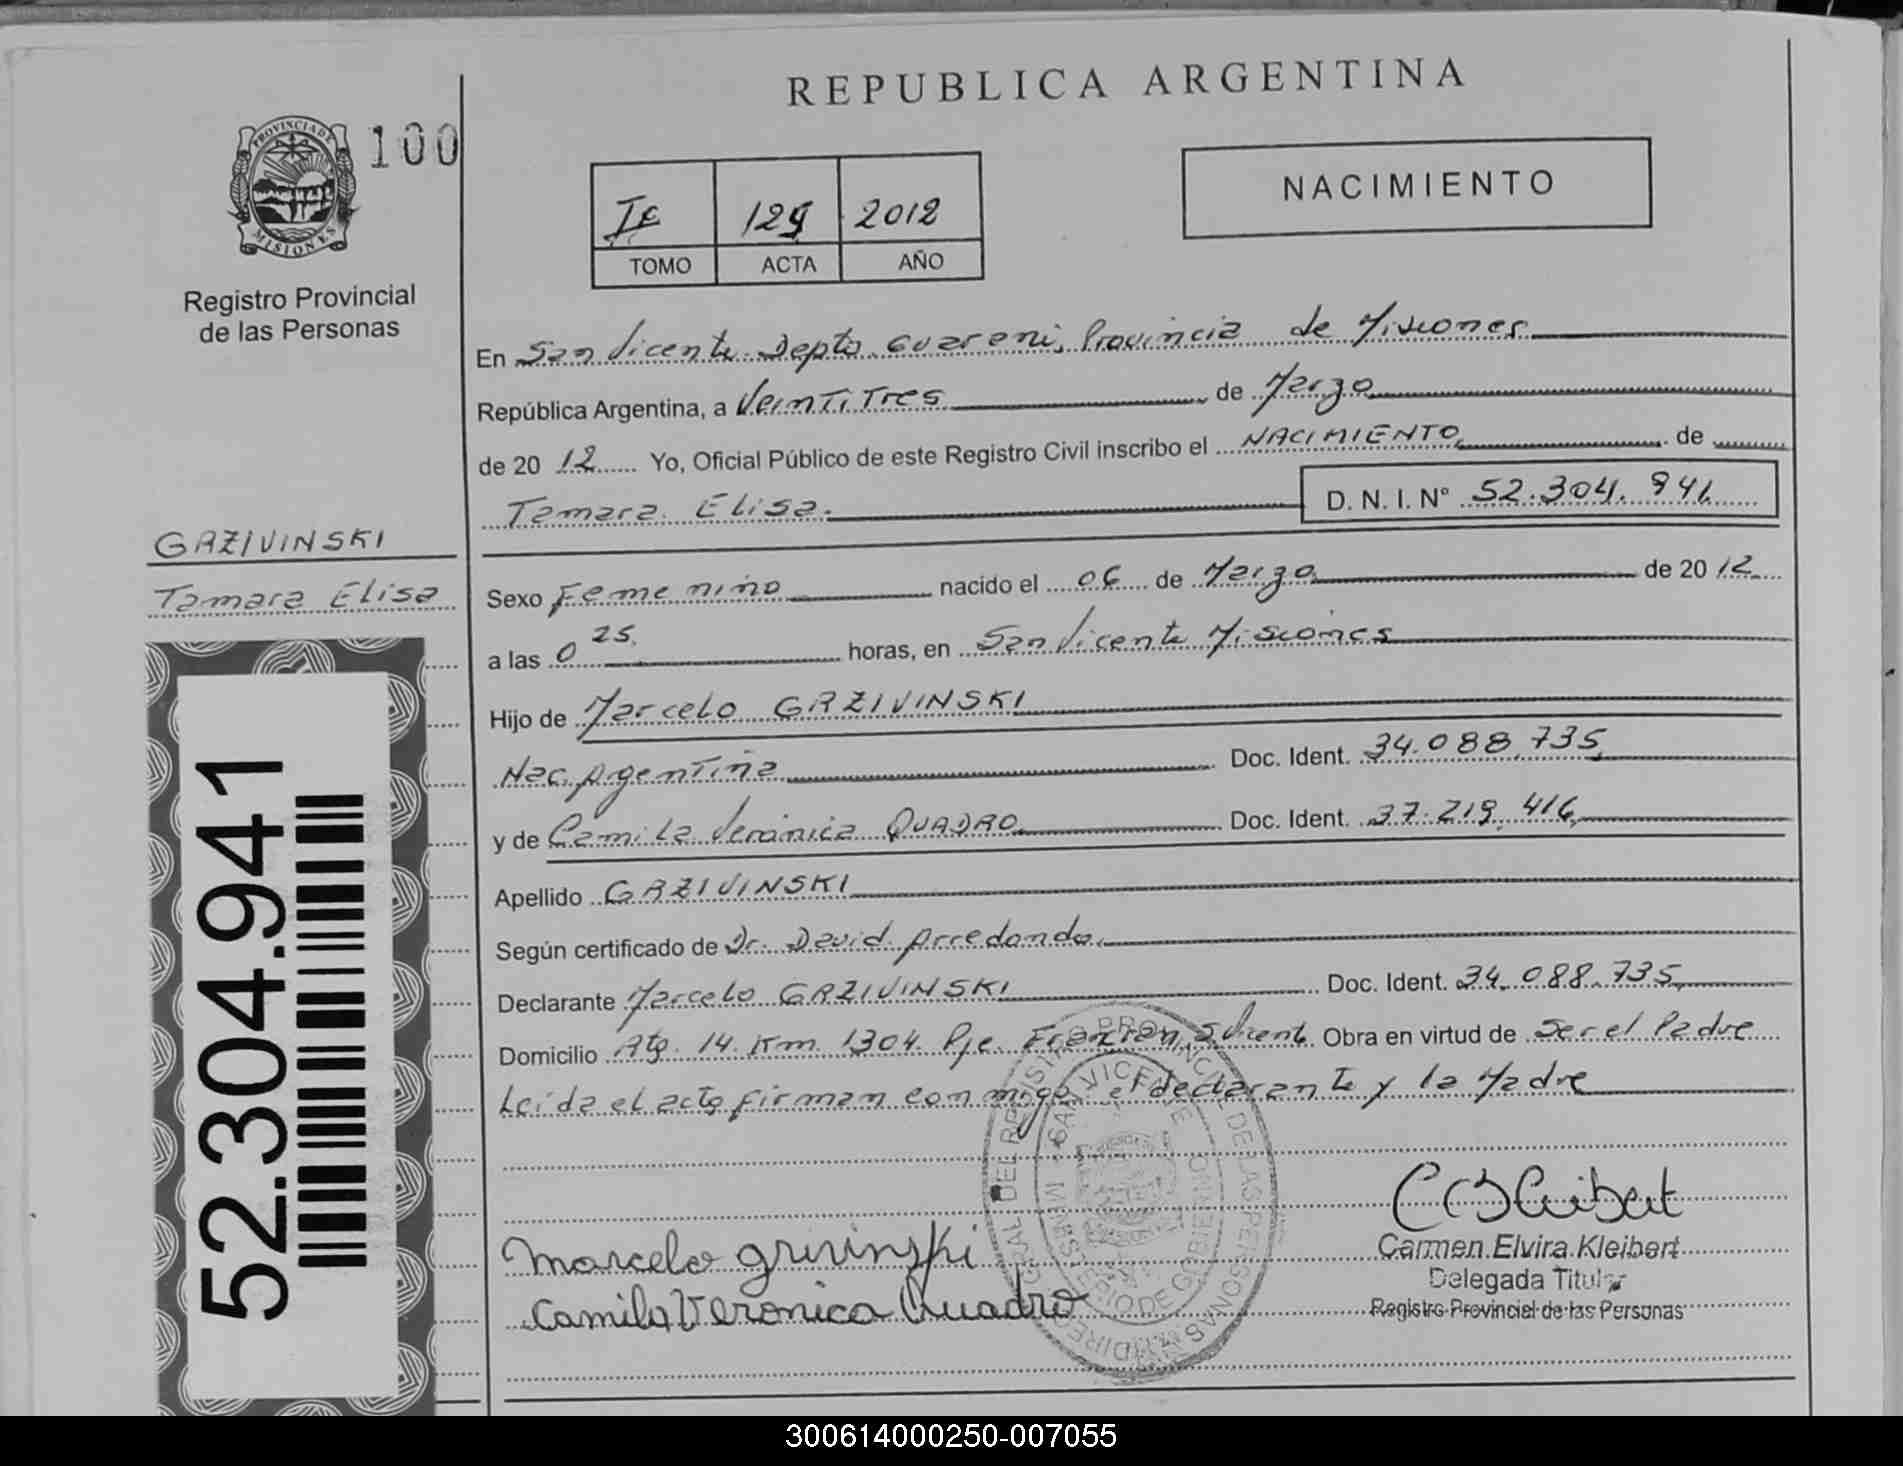 REPUBLICA ARGENTINA
PROVINCIA DE
MISIONES
100
Registro Provincial
de las Personas
129 2012
TOMO ACTA AÑO
NACIMIENTO
En San Vicente Depto. Guarani, Provincia de Misiones
República Argentina, a Veintitres de Marzo
de 20 12 Yo, Oficial Público de este Registro Civil inscribo el NACIMIENTO de
Tamara Elisa. D. N. I. N° 52.304.941
GRZIVINSKI
Tamara Elisa
Sexo Femenino nacido el 06 de Marzo de 20 12
a las 0 25 horas, en San Vicente Misiones
Hijo de Marcelo GRZIVINSKI
Nac. Argentina Doc. Ident. 34.088.735
y de Camila Veronica QUADRO Doc. Ident. 37.219.416
Apellido GRZIVINSKI
Según certificado de Dr. David Arredondo
Declarante Marcelo GRZIVINSKI Doc. Ident. 34.088.735
Domicilio 14 Km 1304 Pje. S. Vicente Obra en virtud de Ser el Padre
Leida el acta firman conmigo el declarante y la Madre
52.304.941
Marcelo grivinski
Camila Veronica Quadro
Carmen Elvira Kleibert
Delegada Titular
Registro Provincial de las Personas
300614000250-007055